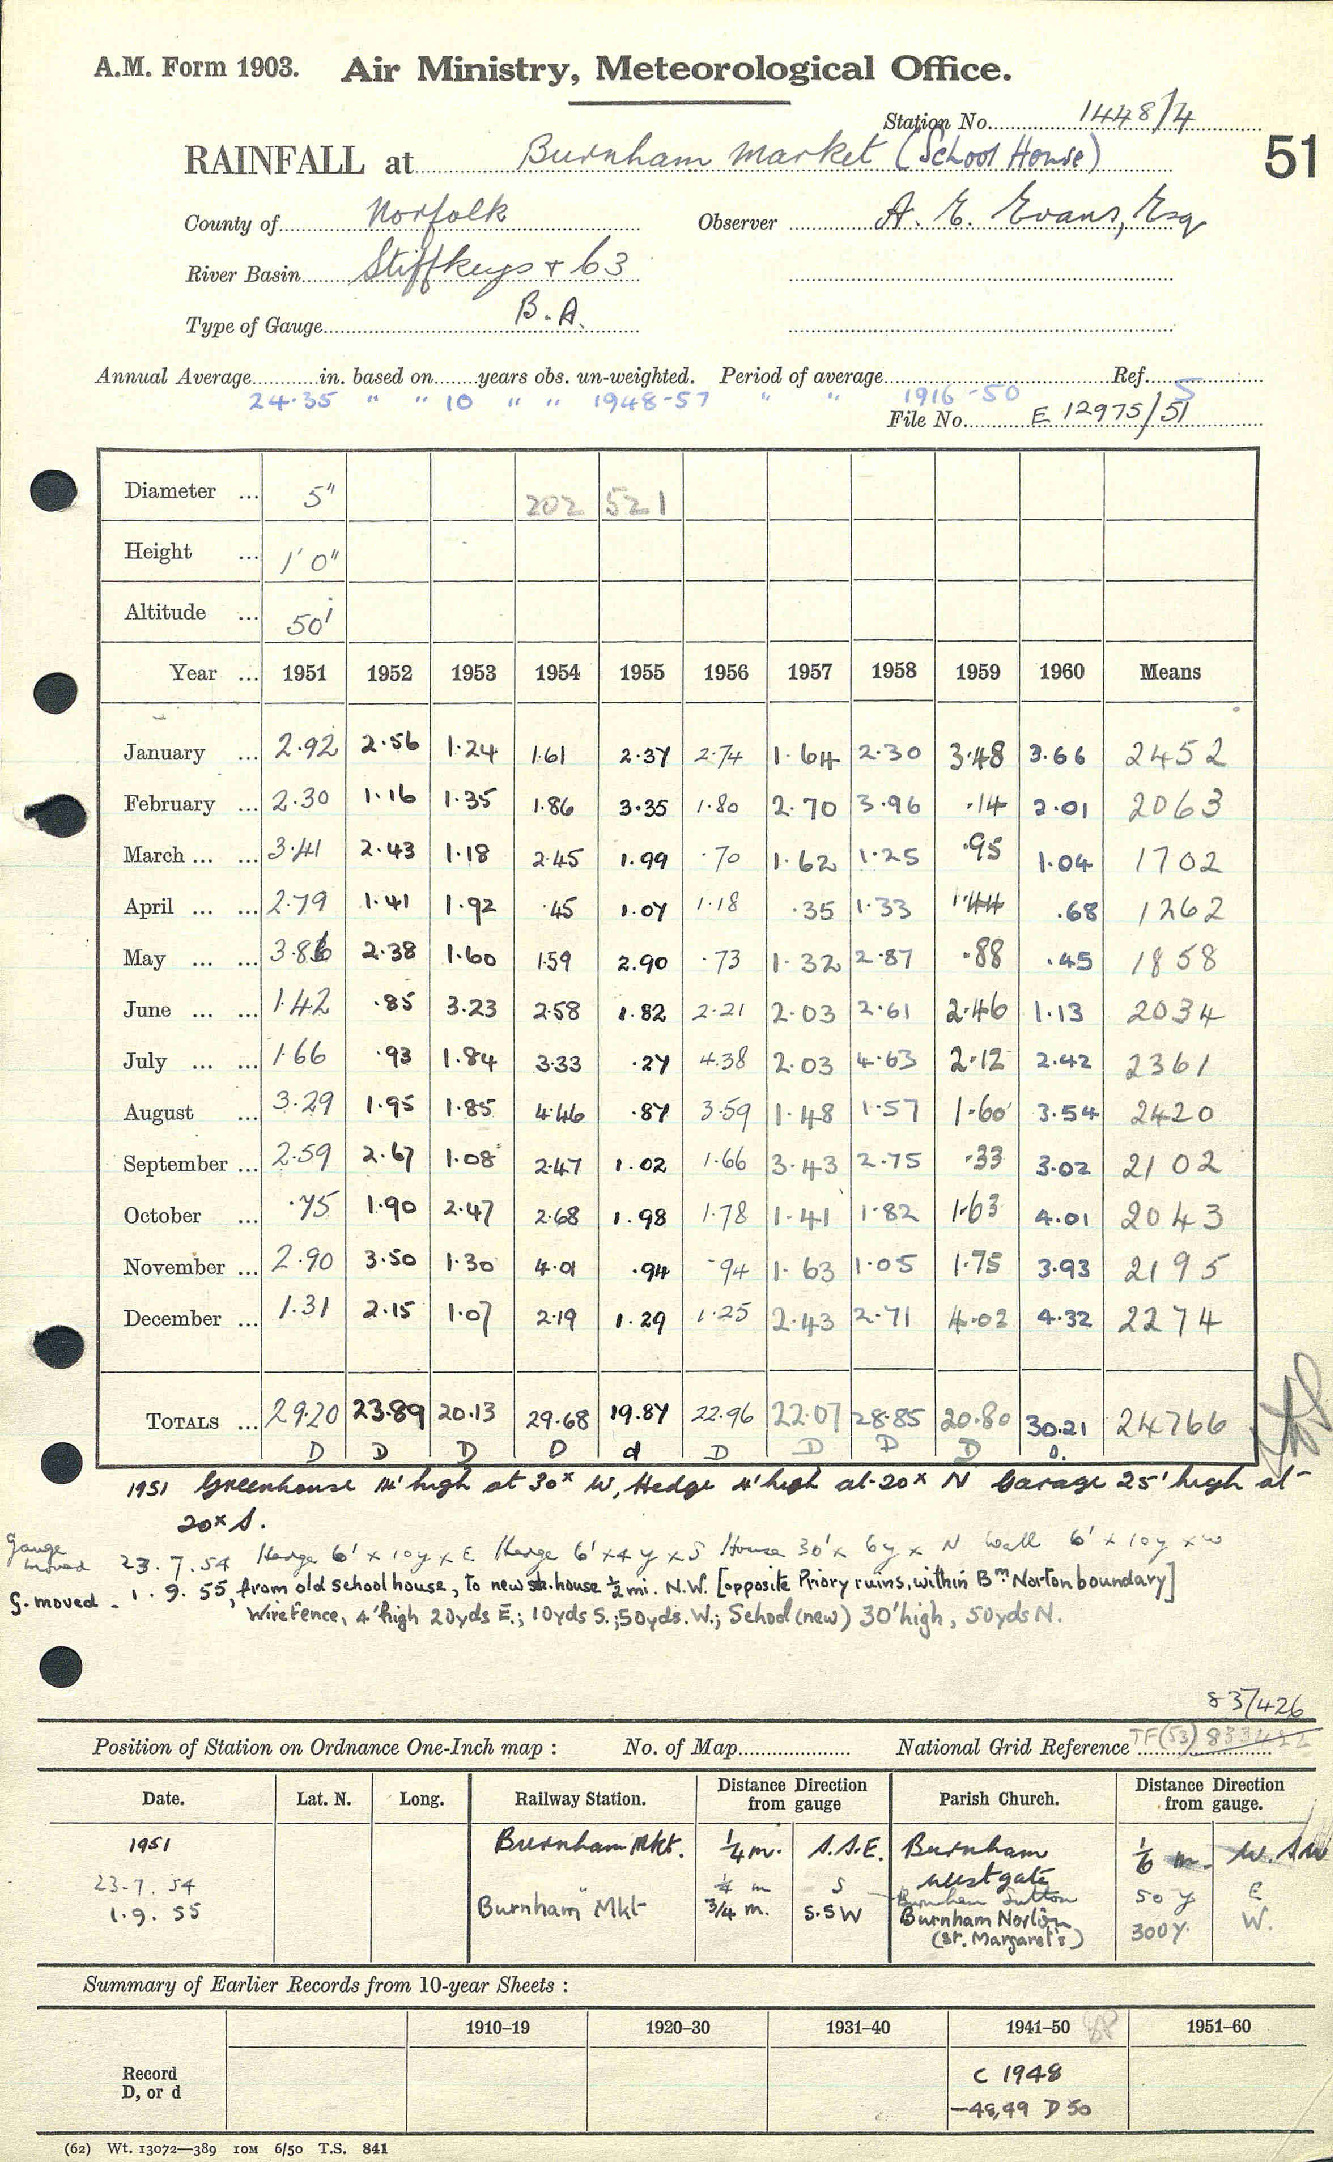 A.M. Form 1903. Air Ministry, Meteorological Office.
Station No. 1448/4
RAINFALL at Burnham Market (School House) 51
County of Norfolk Observer A. E. Evans, Esq
River Basin Stiffkeys + 63
Type of Gauge B.A.
Annual Average in. based on years obs. un-weighted. Period of average Ref. 5
24.35 " " 10 " " 1948-57 " " 1916-50
File No. E 12975/51
Diameter ... 5" 202 521
Height ... 1' 0"
Altitude ... 50'
Year ... 1951 1952 1953 1954 1955 1956 1957 1958 1959 1960 Means
January ... 2.92 2.56 1.24 1.61 2.37 2.74 1.64 2.30 3.48 3.66 2452
February ... 2.30 1.16 1.35 1.86 3.35 1.80 2.70 3.96 .14 2.01 2063
March ... ... 3.41 2.43 1.18 2.45 1.99 .70 1.62 1.25 .95 1.04 1702
April ... ... 2.79 1.41 1.92 .45 1.07 1.18 .35 1.33 1.44 .68 1262
May ... ... 3.86 2.38 1.60 1.59 2.90 .73 1.32 2.87 .88 .45 1858
June ... ... 1.42 .85 3.23 2.58 1.82 2.21 2.03 2.61 2.46 1.13 2034
July ... ... 1.66 .93 1.84 3.33 .27 4.38 2.03 4.63 2.12 2.42 2361
August ... 3.29 1.95 1.85 4.46 .87 3.59 1.48 1.57 1.60 3.54 2420
September ... 2.59 2.67 1.08 2.47 1.02 1.66 3.43 2.75 .33 3.02 2102
October ... .75 1.90 2.47 2.68 1.98 1.78 1.41 1.82 1.63 4.01 2043
November ... 2.90 3.50 1.30 4.01 .94 .94 1.63 1.05 1.75 3.93 2195
December ... 1.31 2.15 1.07 2.19 1.29 1.25 2.43 2.71 4.02 4.32 2274
TOTALS ... 29.20 23.89 20.13 29.68 19.87 22.96 22.07 28.85 20.80 30.21 24766
D D D D d D D D D D.
1951 Greenhouse 14' high at 30x W, Hedge 4' high at 20x N Garage 25' high at
20x S.
gauge moved 23.7.54 Hedge 6' x 10y x E Hedge 6' x 4y x S House 30' x 6y x N Wall 6' x 10y x W
G. moved - 1.9.55, from old school house, to new sch. house ½ mi. N.W. [opposite Priory ruins, within Bm Norton boundary]
Wire fence, 4' high 20yds E.; 10yds S.; 50yds. W.; School (new) 30' high, 50yds N.
837426
Position of Station on Ordnance One-Inch map : No. of Map National Grid Reference TF(53) 833422
Date. Lat. N. Long. Railway Station. Distance Direction from gauge Parish Church. Distance Direction from gauge.
1951 Burnham Mkt. ¼ m. S.S.E. Burnham Westgate 1/6 m. W.SW
23.7.54 " ¼ m S Burnham Sutton 50 y E
1.9.55 Burnham Mkt 3/4 m. S.SW Burnham Norton (St. Margaret's) 300y. W.
Summary of Earlier Records from 10-year Sheets :
1910–19 1920–30 1931–40 1941–50 1951–60
Record D, or d C 1948
-48,49 D 50
(62) Wt. 13072—389 10M 6/50 T.S. 841